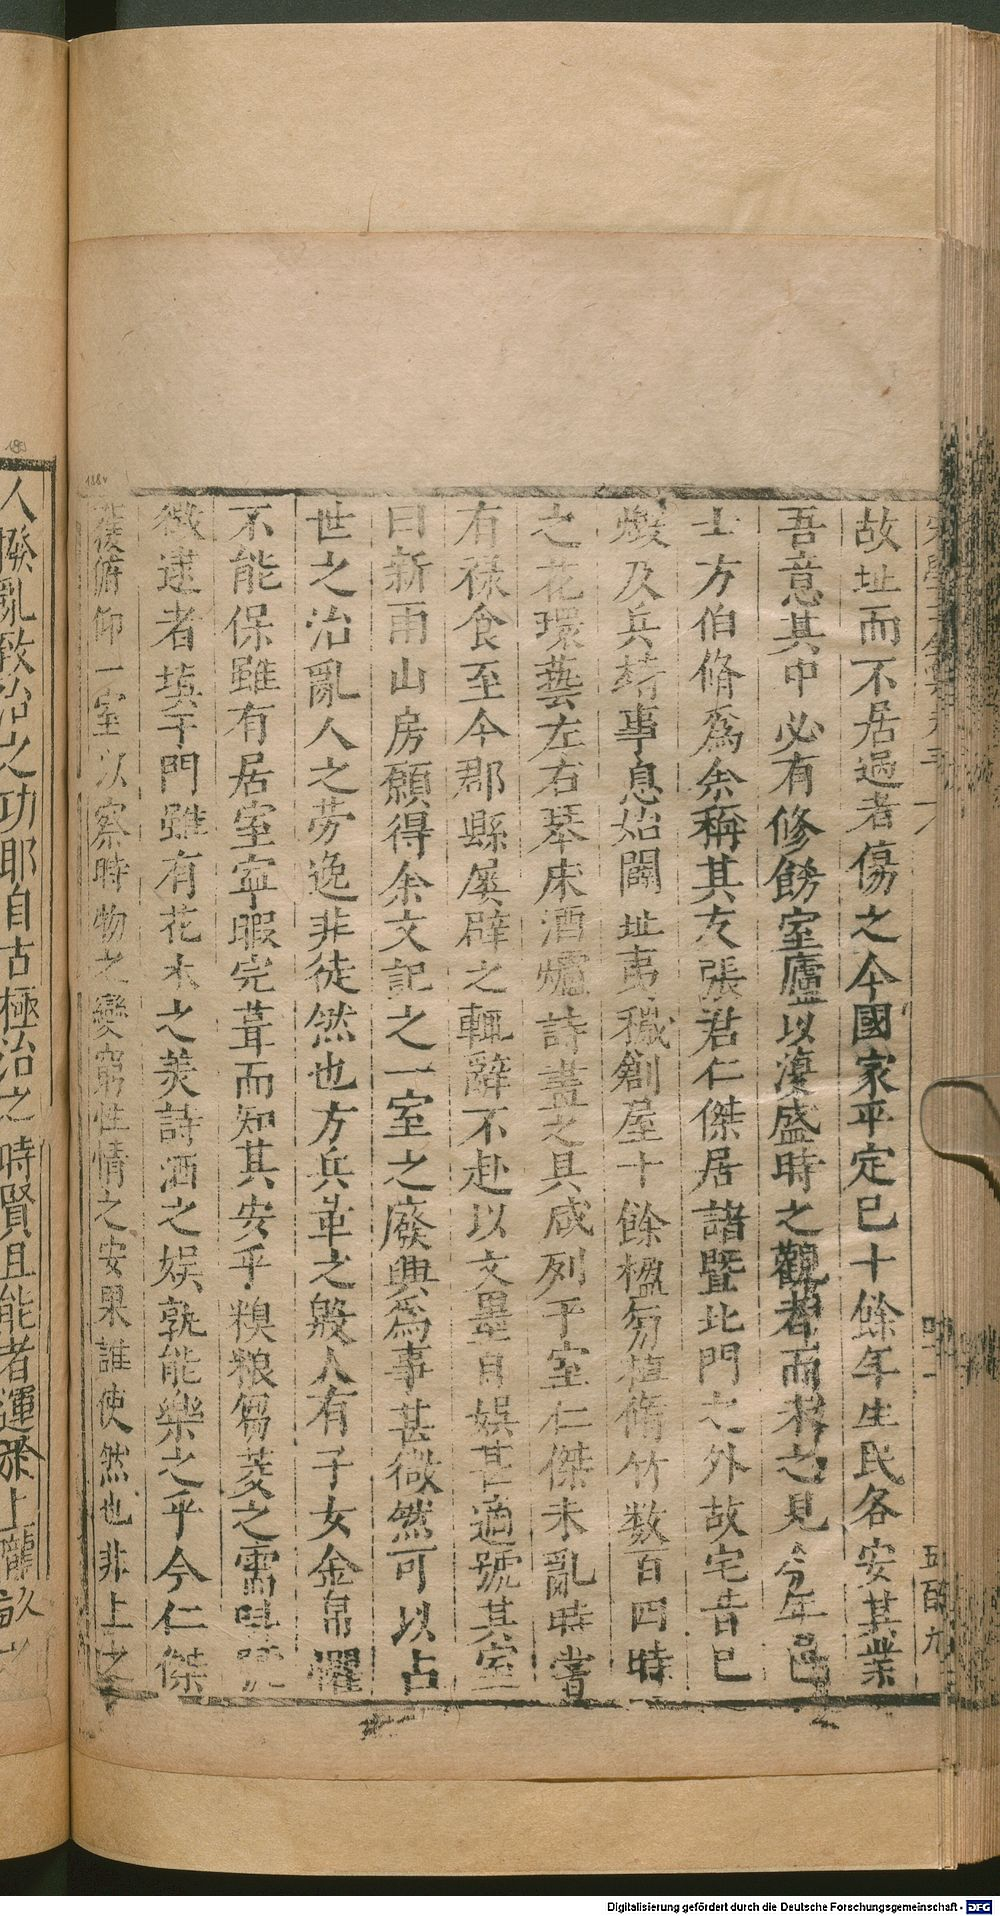 故址而不居過者傷之今國家平定已十餘年生民各安其業
吾意其中必有修飭室廬以復盛時之觀者而未之見今年邑
士方伯脩為余稱其友張君仁傑居諸暨北門之外故宅昔已
燬及兵靖事息始闢址夷穢創屋十餘楹旁植脩竹数百四時
之花環藝左右琴床酒爐詩畫之具咸列于室仁傑未亂時嘗
右祿食至今郡縣屡辟之輒辭不赴以文墨自娱甚適號其室
曰新雨山房願得余文記之一室之廢興為事甚微然可以占
世之治亂人之劳逸非徒然也方兵革之殷人有子女金帛懼
不能保雖有居室寧暇完葺而知其安乎糗粮芻茭之需叫號
徵逮者填于門雖有花木之美詩酒之娱孰能樂之乎今仁傑
俯仰一室以察時物之變窮性情之安果誰使然也非上之
人撥亂致治之功耶自古極治之時賢且能者運於上
五百九
1884
Digitalisierung gefördert durch die Deutsche Forschungsgemeinschaft - DFG